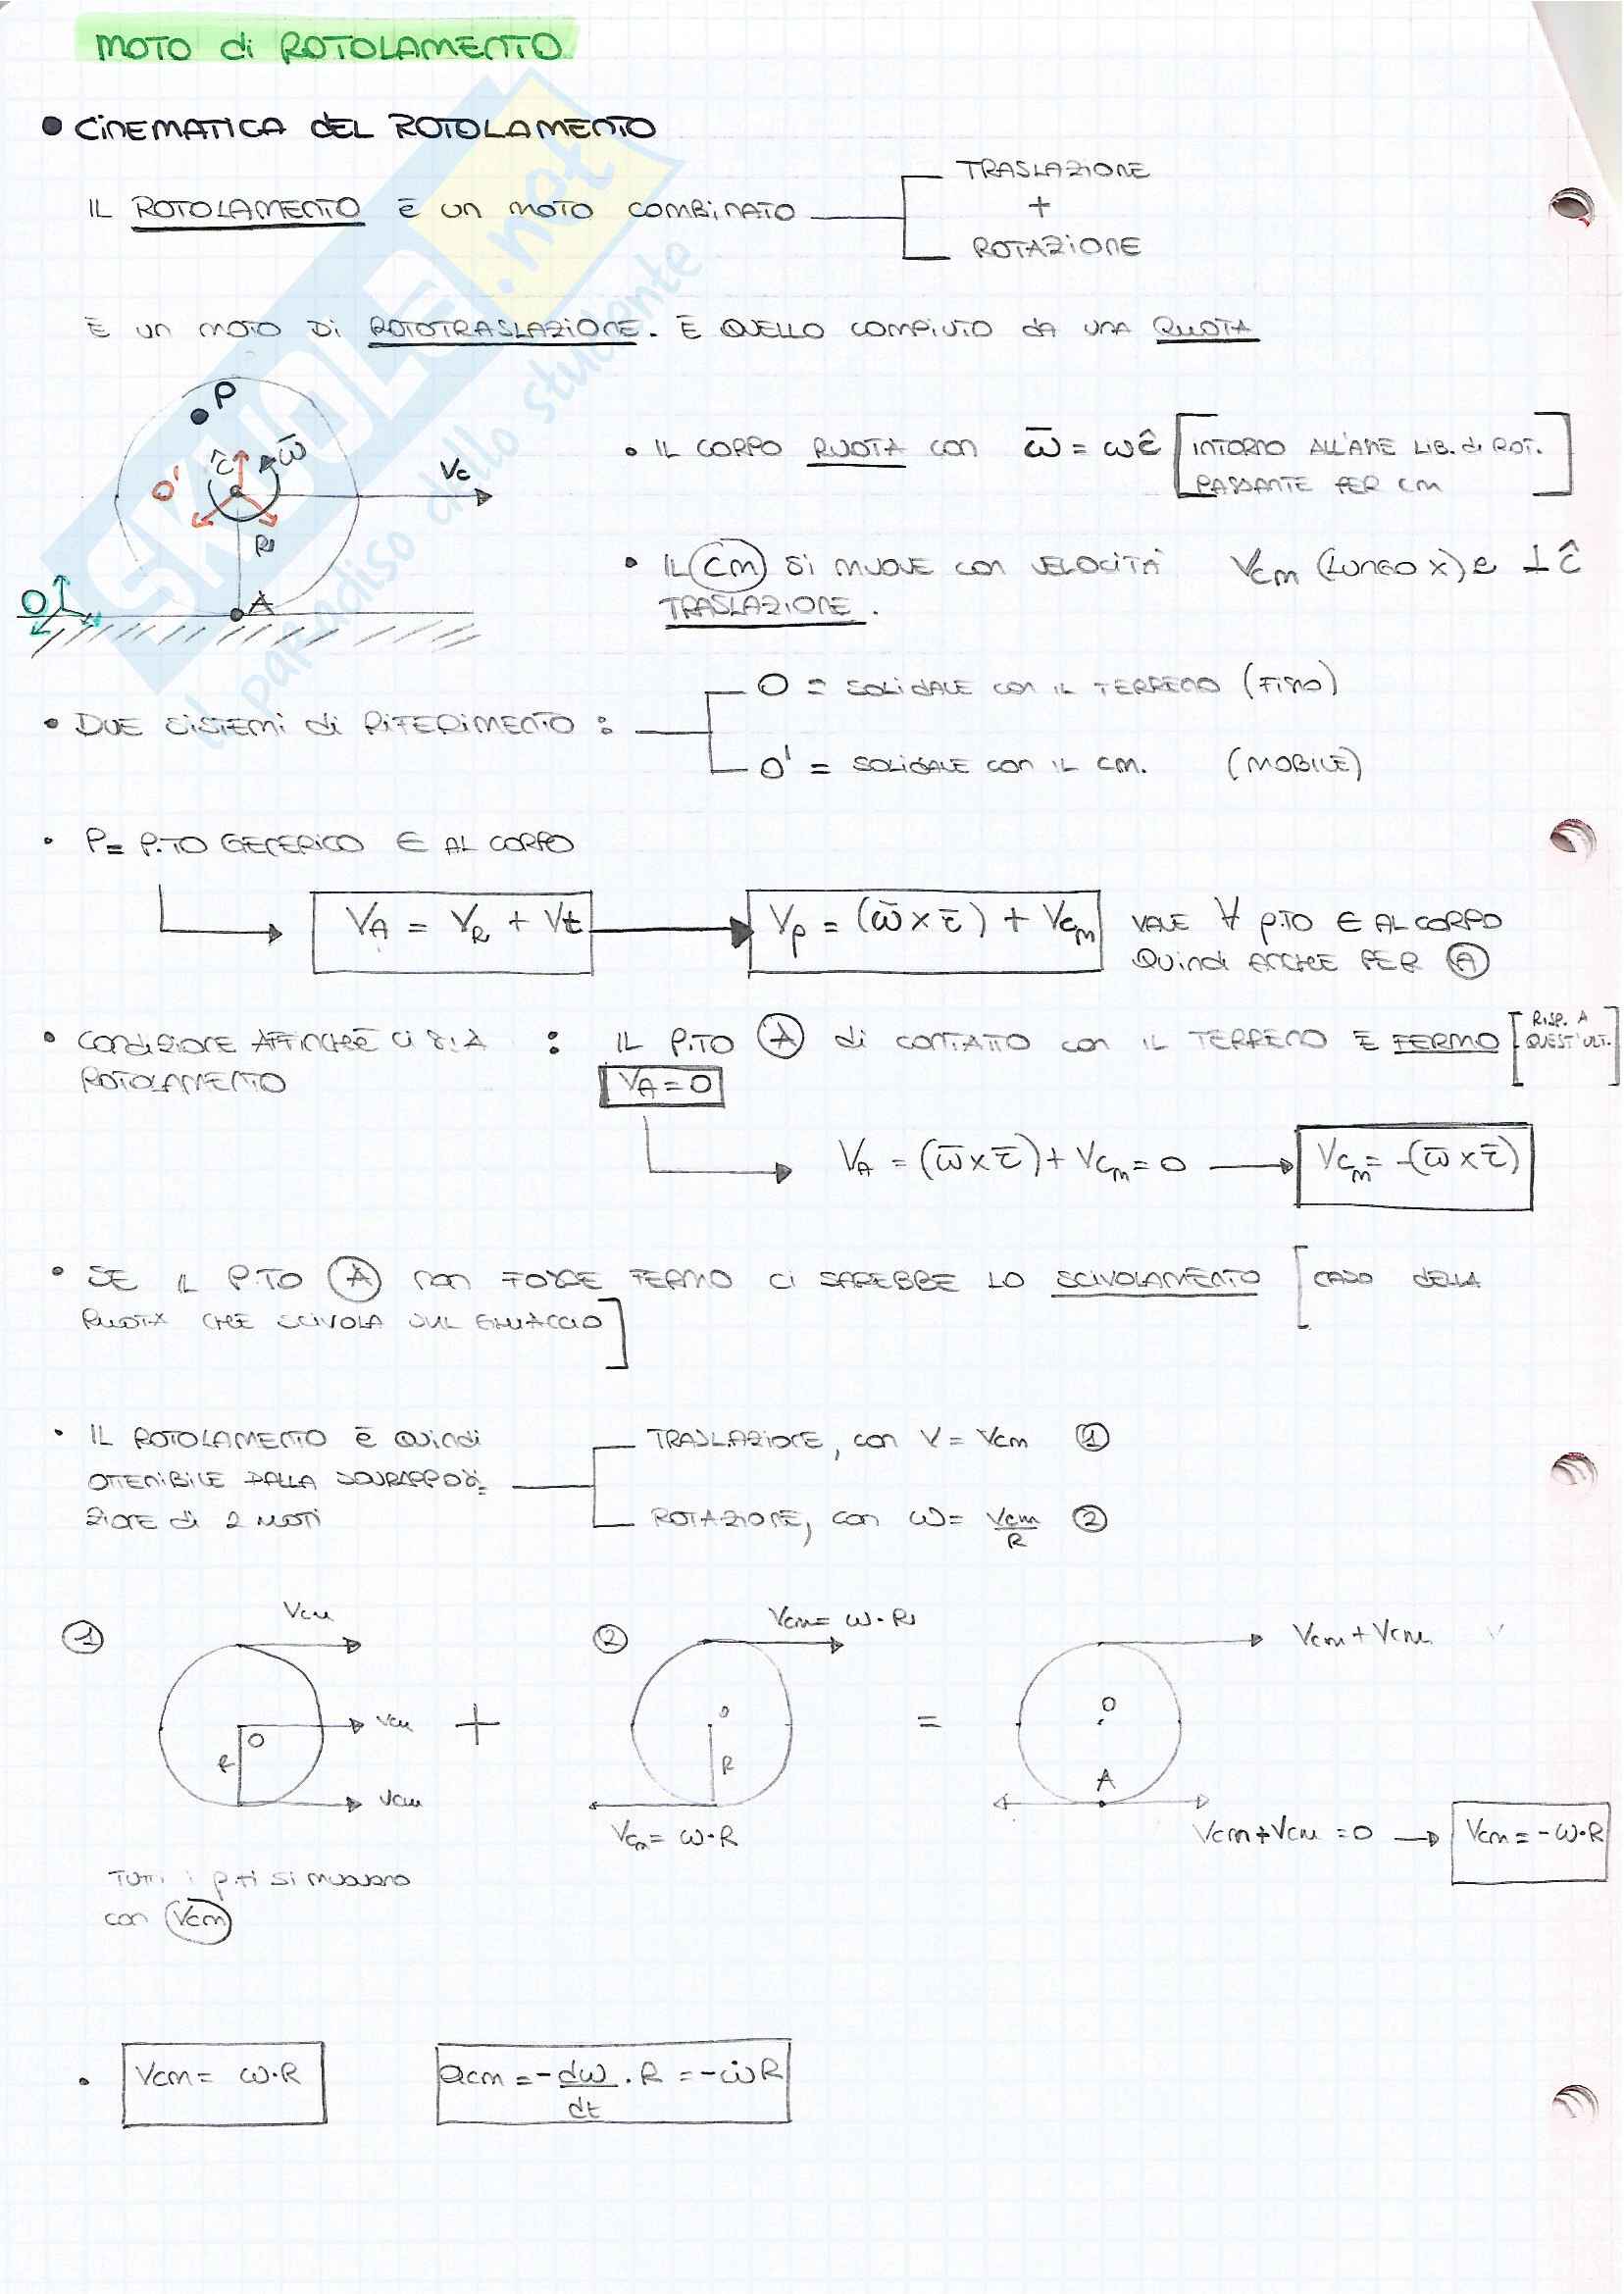 MOTO di ROTOLAMENTO
• CINEMATICA DEL ROTOLAMENTO
IL ROTOLAMENTO È UN MOTO COMBINATO
TRASLAZIONE
+
ROTAZIONE
È UN MOTO DI ROTOTRASLAZIONE. È QUELLO COMPIUTO da UNA RUOTA
P
ω̄
ĉ
O'
Vc
R
O
A
• IL CORPO RUOTA con ω̄ = ωĉ [INTORNO ALL'ASSE LIB. di ROT.
PASSANTE PER CM]
• IL (CM) SI MUOVE con VELOCITÀ Vcm (LUNGO X) e ⊥ ĉ
TRASLAZIONE.
• DUE SISTEMI di RIFERIMENTO :
O = SOLIDALE con IL TERRENO (FISSO)
O' = SOLIDALE CON IL CM. (MOBILE)
• P = P.TO GENERICO ∈ AL CORPO
VA = VR + Vt
Vp = (ω̄ × r̄) + Vcm
VALE ∀ P.TO ∈ AL CORPO
QUINDI ANCHE PER (A)
• CONDIZIONE AFFINCHÈ CI SIA : IL P.TO (A) di CONTATTO con IL TERRENO È FERMO [RISP. A
QUEST'ULT.]
ROTOLAMENTO
VA = 0
VA = (ω̄ × r̄) + Vcm = 0 → Vcm = -(ω̄ × r̄)
• SE IL P.TO (A) non FOSSE FERMO CI SAREBBE LO SCIVOLAMENTO [CASO DELLA
RUOTA CHE SCIVOLA SUL GHIACCIO]
• IL ROTOLAMENTO È QUINDI
OTTENIBILE DALLA SOVRAPPOSI
ZIONE di 2 MOTI
TRASLAZIONE, con V = Vcm (1)
ROTAZIONE, con ω = Vcm/R (2)
(1)
Vcm
O
Vcm
R
Vcm
+
(2)
Vcm = ω·R
O
R
Vcm = ω·R
=
Vcm + Vcm
O
A
Vcm + Vcm = 0 → Vcm = -ω·R
TUTTI i p.ti SI MUOVONO
con (Vcm)
• Vcm = ω·R
acm = -dω/dt · R = -ω̇R
SKUOLA.net
il paradiso dello studente